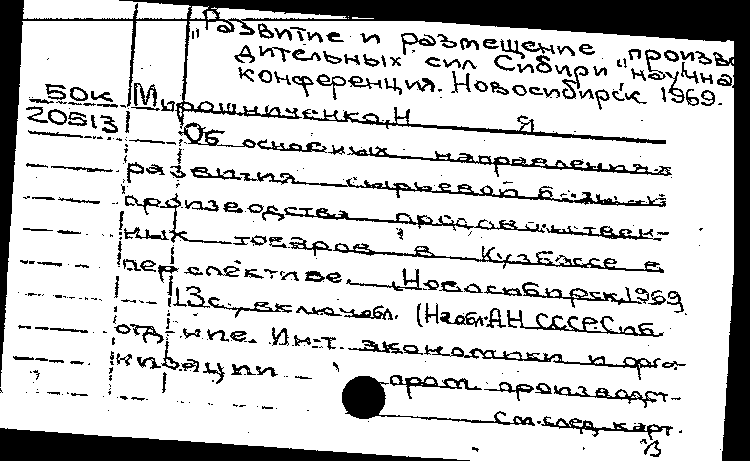 "Развитие и размещение произво
дительных сил Сибири" научная
конференция. Новосибирск 1969.
БОК
20513
Мирошниченко, Н Я
Об основных направлениях
развития сырьевой базы и
производства продовольствен-
ных товаров в Кузбассе в
перспективе. Новосибирск, 1969
13с., включ. обл. (На обл: АН СССР. Сиб.
отд-ние. Ин-т экономики и орга-
низации пром. производст-
см. след. карт.